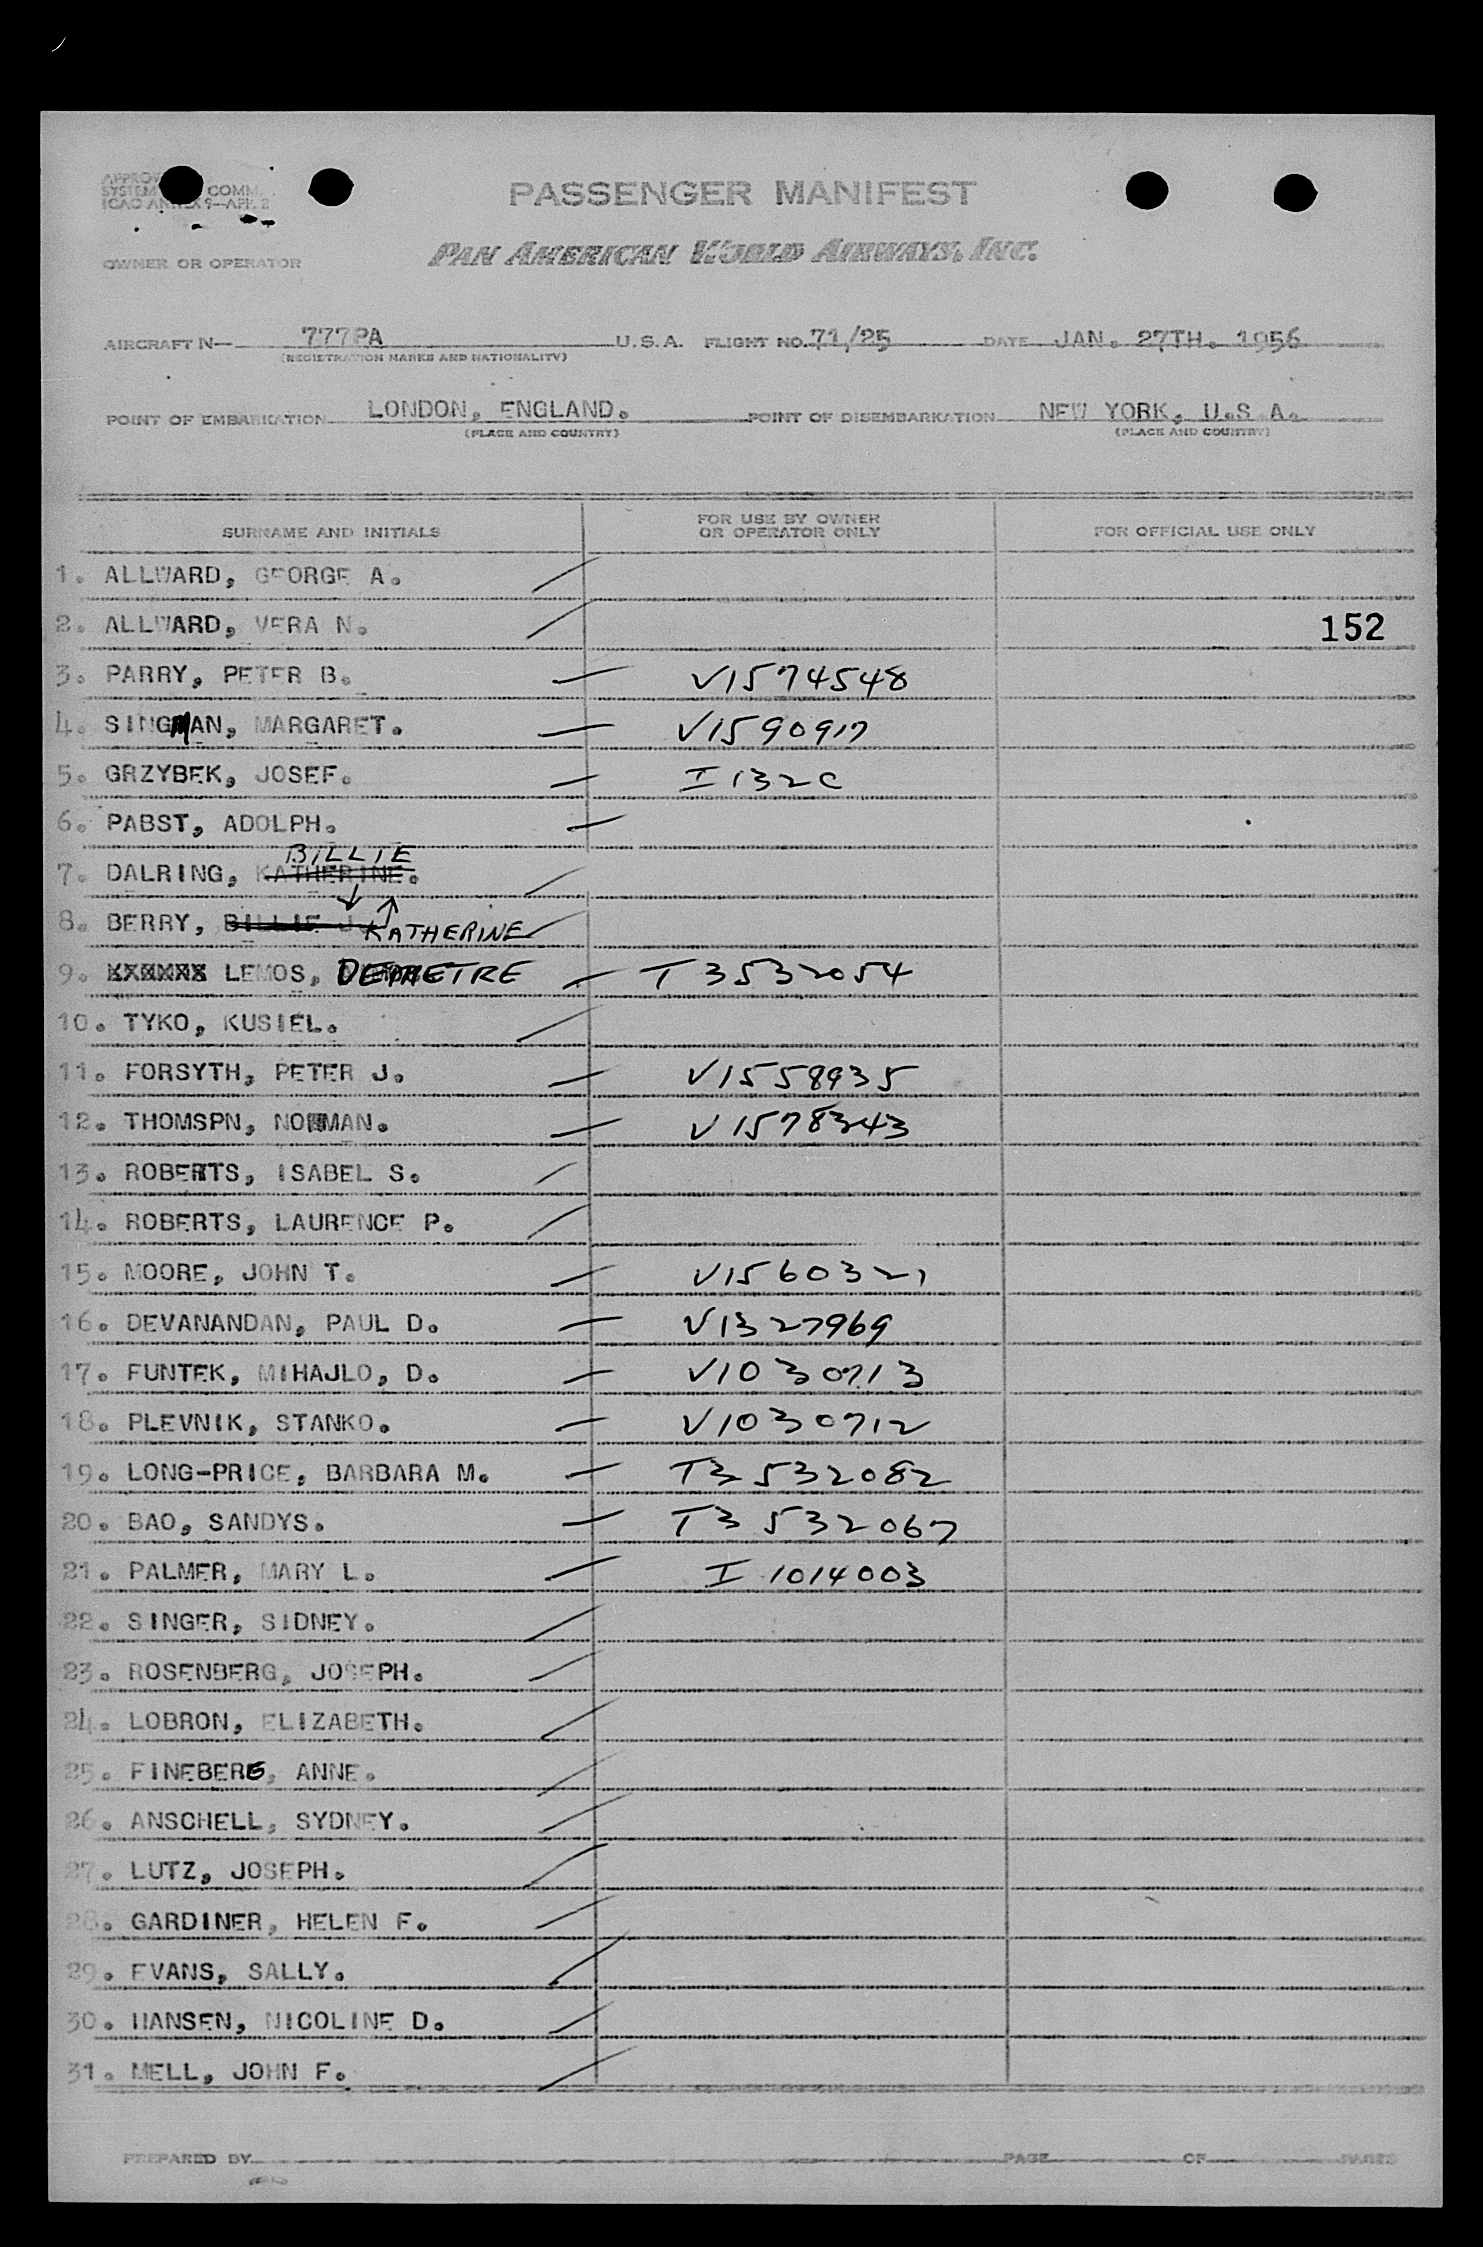 SYSTEM COMM.
ICAO ANNEX 9—APP. 2
PASSENGER MANIFEST
PAN AMERICAN WORLD AIRWAYS, INC.
OWNER OR OPERATOR
AIRCRAFT N— 777PA U.S.A. FLIGHT NO. 71/25 DATE JAN. 27TH. 1956
(REGISTRATION MARKS AND NATIONALITY)
POINT OF EMBARKATION LONDON, ENGLAND. POINT OF DISEMBARKATION NEW YORK, U.S.A.
(PLACE AND COUNTRY) (PLACE AND COUNTRY)
SURNAME AND INITIALS FOR USE BY OWNER OR OPERATOR ONLY FOR OFFICIAL USE ONLY
1. ALLWARD, GEORGE A.
2. ALLWARD, VERA N. 152
3. PARRY, PETER B. V1574548
4. SINGMAN, MARGARET. V1590917
5. GRZYBEK, JOSEF. I 132C
6. PABST, ADOLPH.
BILLIE
7. DALRING, KATHERINE.
8. BERRY, BILLIE J. KATHERINE
9. LEMOS, DEMETRE T3532054
10. TYKO, KUSIEL.
11. FORSYTH, PETER J. V1558935
12. THOMSPN, NORMAN. V1578343
13. ROBERTS, ISABEL S.
14. ROBERTS, LAURENCE P.
15. MOORE, JOHN T. V1560321
16. DEVANANDAN, PAUL D. V1327969
17. FUNTEK, MIHAJLO, D. V1030713
18. PLEVNIK, STANKO. V1030712
19. LONG-PRICE, BARBARA M. T3532082
20. BAO, SANDYS. T3532067
21. PALMER, MARY L. I 1014003
22. SINGER, SIDNEY.
23. ROSENBERG, JOSEPH.
24. LOBRON, ELIZABETH.
25. FINEBERG, ANNE.
26. ANSCHELL, SYDNEY.
27. LUTZ, JOSEPH.
28. GARDINER, HELEN F.
29. EVANS, SALLY.
30. HANSEN, NICOLINE D.
31. MELL, JOHN F.
PREPARED BY PAGE OF PAGES